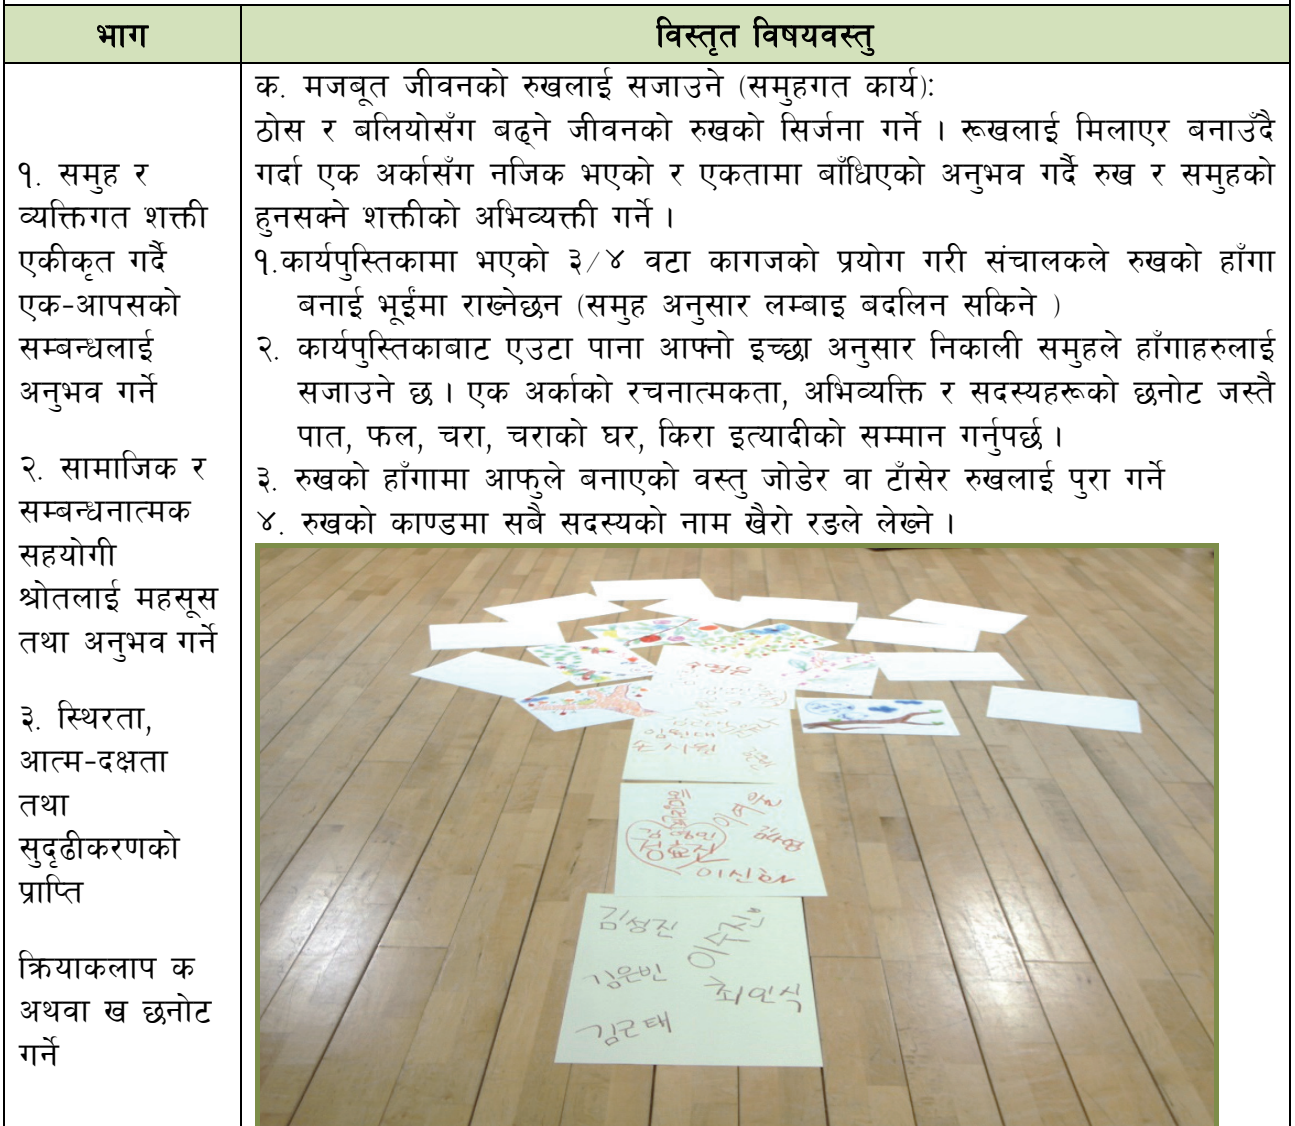 भाग
विस्तृत विषयवस्तु
१. समुह र
व्यक्तिगत शक्ती
एकीकृत गर्दै
एक-आपसको
सम्बन्धलाई
अनुभव गर्ने
२. सामाजिक र
सम्बन्धनात्मक
सहयोगी
श्रोतलाई महसूस
तथा अनुभव गर्ने
३. स्थिरता,
आत्म-दक्षता
तथा
सुदृढीकरणको
प्राप्ति
क्रियाकलाप क
अथवा ख छनोट
गर्ने
क. मजबूत जीवनको रुखलाई सजाउने (समुहगत कार्य):
ठोस र बलियोसँग बढ्ने जीवनको रुखको सिर्जना गर्ने । रूखलाई मिलाएर बनाउँदै
गर्दा एक अर्कासँग नजिक भएको र एकतामा बाँधिएको अनुभव गर्दै रुख र समुहको
हुनसक्ने शक्तीको अभिव्यक्ती गर्ने ।
१.कार्यपुस्तिकामा भएको ३/४ वटा कागजको प्रयोग गरी संचालकले रुखको हाँगा
बनाई भूईंमा राख्नेछन (समुह अनुसार लम्बाइ बदलिन सकिने )
२. कार्यपुस्तिकाबाट एउटा पाना आफ्नो इच्छा अनुसार निकाली समुहले हाँगाहरुलाई
सजाउने छ । एक अर्काको रचनात्मकता, अभिव्यक्ति र सदस्यहरूको छनोट जस्तै
पात, फल, चरा, चराको घर, किरा इत्यादीको सम्मान गर्नुपर्छ ।
३. रुखको हाँगामा आफुले बनाएको वस्तु जोडेर वा टाँसेर रुखलाई पुरा गर्ने
४. रुखको काण्डमा सबै सदस्यको नाम खैरो रङले लेख्ने ।
김성진
이수진
김은빈
최인식
김근태